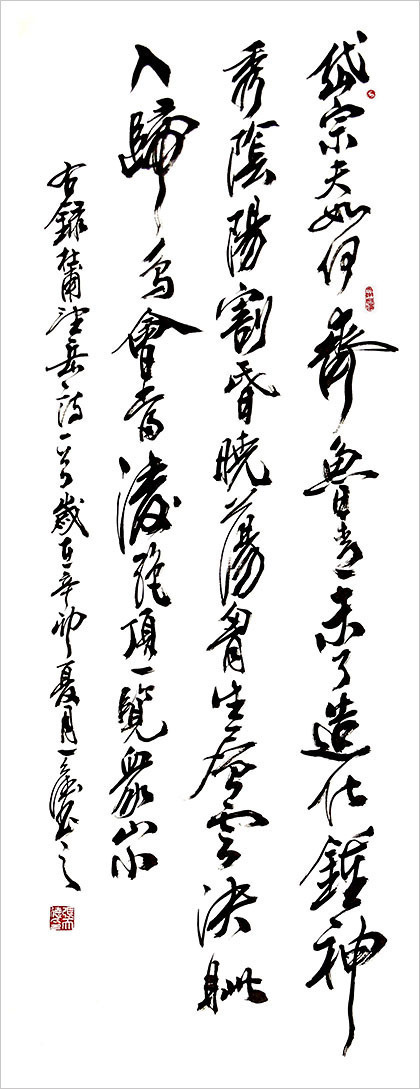 岱宗夫如何齊魯青未了造化鍾神
秀陰陽割昏曉蕩胷生層雲決眦
入歸鳥會當淩絕頂一覽衆山小
右錄杜甫望岳詩一首歲在辛卯夏月一書之